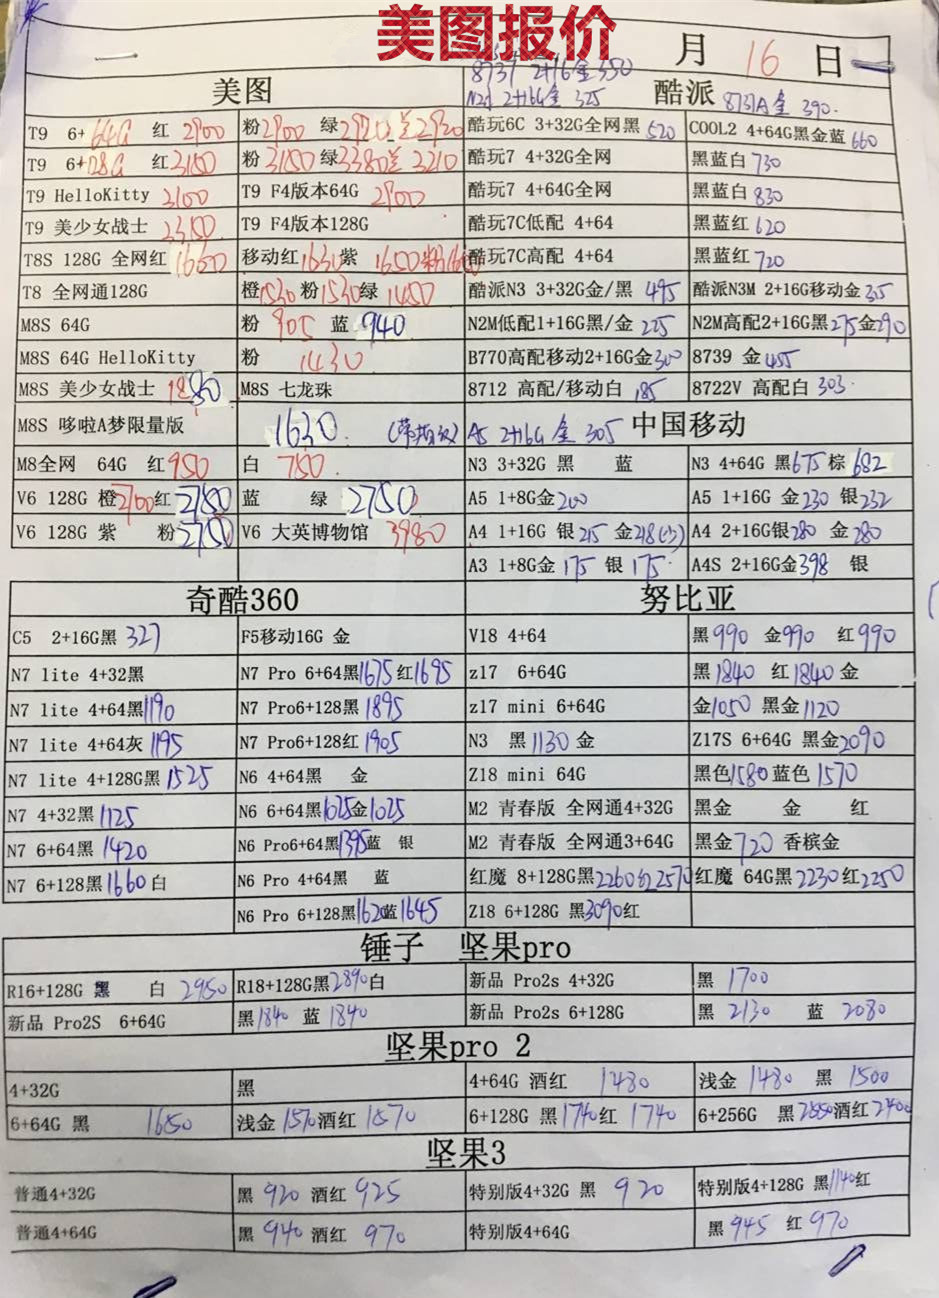 美图报价
一 月 16 日
8737 2+16金 350
美图 N2d 2+16G 金 325 酷派 8737A金 390.
T9 6+64G 红 2900 粉2900 绿 2920 酷玩6C 3+32G全网黑 520 COOL2 4+64G黑金蓝 660
T9 6+128G 红3150 粉 3150 绿3380 3210 酷玩7 4+32G全网 黑蓝白 730
T9 HelloKitty 3100 T9 F4版本64G 2900 酷玩7 4+64G全网 黑蓝白 830
T9 美少女战士 3350 T9 F4版本128G 酷玩7C低配 4+64 黑蓝红 620
T8S 128G 全网红 1600 移动红1630紫 1650粉 酷玩7C高配 4+64 黑蓝红 720
T8 全网通128G 橙1530 粉1530绿 1450 酷派N3 3+32G金/黑 495 酷派N3M 2+16G移动金 315
M8S 64G 粉 905 蓝 940 N2M低配1+16G黑/金 225 N2M高配2+16G黑275金290
M8S 64G HelloKitty 粉 1430 B770高配移动2+16G金300 8739 金455
M8S 美少女战士 1880 M8S 七龙珠 8712 高配/移动白 185 8722V 高配白 303
M8S 哆啦A梦限量版 1630. A5 2+16G 金 305 中国移动
M8全网 64G 红950 白 750 N3 3+32G 黑 蓝 N3 4+64G 黑675 棕 682
V6 128G 橙2700红2750 蓝 绿 2750 A5 1+8G金200 A5 1+16G 金230 银232
V6 128G 紫 粉2750 V6 大英博物馆 3980 A4 1+16G 银215 金218(少) A4 2+16G银280 金280
A3 1+8G金 175 银 175 A4S 2+16G金398 银
奇酷360 努比亚
C5 2+16G黑 327 F5移动16G 金 V18 4+64 黑990 金990 红990
N7 lite 4+32黑 N7 Pro 6+64黑1675红1695 z17 6+64G 黑 1840 红1840 金
N7 lite 4+64黑1190 N7 Pro6+128黑 1895 z17 mini 6+64G 金1050 黑金1120
N7 lite 4+64灰 1195 N7 Pro6+128红 1905 N3 黑 1130 金 Z17S 6+64G 黑金2090
N7 lite 4+128G黑 1525 N6 4+64黑 金 Z18 mini 64G 黑色1580蓝色 1570
N7 4+32黑 1125 N6 6+64黑1025金1025 M2 青春版 全网通4+32G 黑金 金 红
N7 6+64黑 1420 N6 Pro6+64黑1395蓝 银 M2 青春版 全网通3+64G 黑金 720 香槟金
N7 6+128黑1660 白 N6 Pro 4+64黑 蓝 红魔 8+128G黑2260红2570 红魔 64G黑2230红2250
N6 Pro 6+128黑1620蓝1645 Z18 6+128G 黑3090红
锤子 坚果pro
R16+128G 黑 白 2950 R18+128G黑2890白 新品 Pro2s 4+32G 黑 1700
新品 Pro2S 6+64G 黑1840 蓝 1840 新品 Pro2s 6+128G 黑 2130 蓝 2080
坚果pro 2
4+32G 黑 4+64G 酒红 1480 浅金 1480 黑 1500
6+64G 黑 1650 浅金 1570酒红 1570 6+128G 黑1740红 1740 6+256G 黑2550酒红2400
坚果3
普通4+32G 黑 920 酒红 925 特别版4+32G 黑 920 特别版4+128G 黑1140红
普通4+64G 黑 940 酒红 970 特别版4+64G 黑 945 红 970